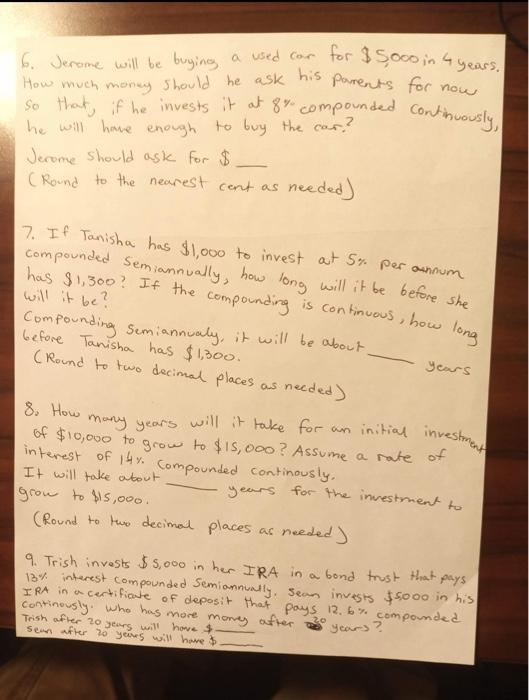 6. Jerome will be buying a used car for $5,000 in 4 years.
How much money should he ask his parents for now
so that, if he invests it at 8% compounded continuously,
he will have enough to buy the car?
Jerome should ask for $ __
(Round to the nearest cent as needed)
7. If Tanisha has $1,000 to invest at 5% per annum
compounded semiannually, how long will it be before she
has $1,300? If the compounding is continuous, how long
will it be?
Compounding semiannualy, it will be about ____ years
before Tanisha has $1,300.
(Round to two decimal places as needed)
8. How many years will it take for an initial investment
of $10,000 to grow to $15,000? Assume a rate of
interest of 14% compounded continously.
It will take about ____ years for the investment to
grow to $15,000.
(Round to two decimal places as needed)
9. Trish invests $5,000 in her IRA in a bond trust that pays
13% interest compounded semiannually. Sean invests $5000 in his
IRA in a certificate of deposit that pays 12.6% compounded
continously. Who has more money after 20 years?
Trish after 20 years will have $____
Sean after 20 years will have $____